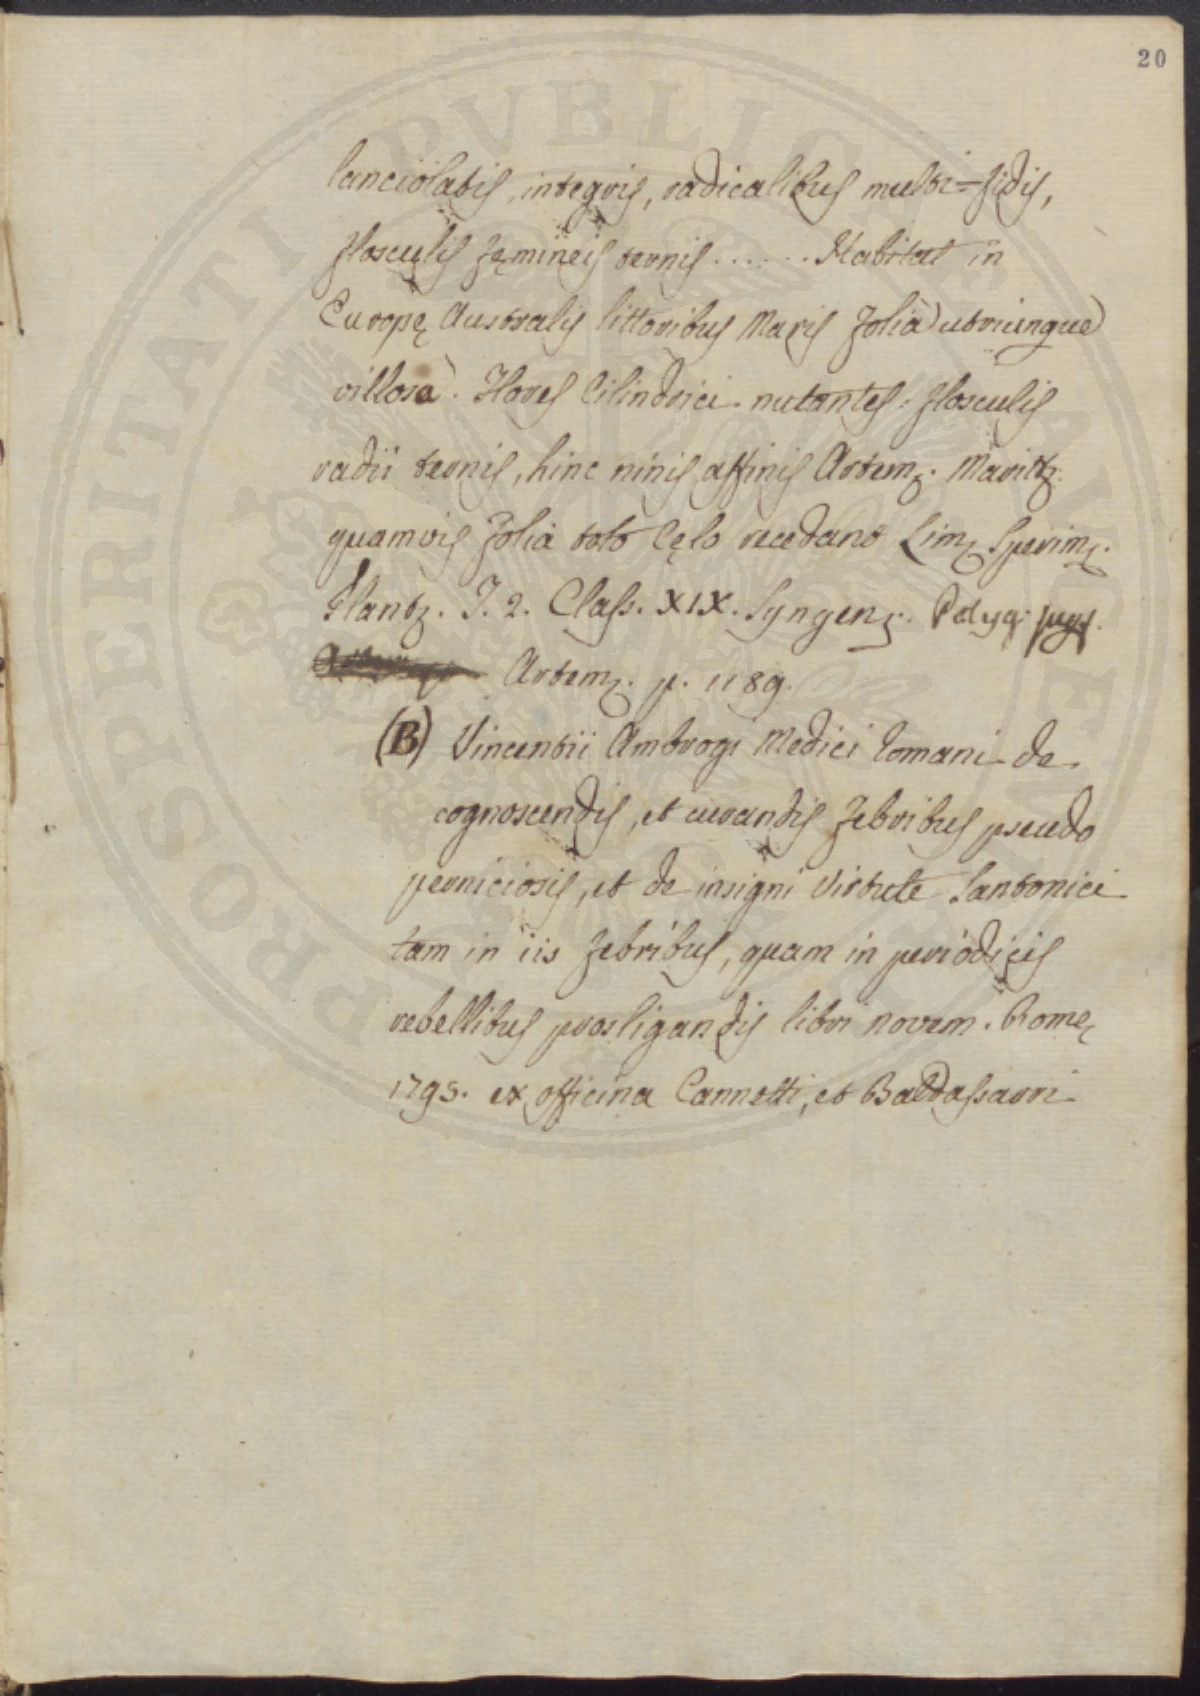 20
lanciolatis, integris, radicalibus multi=fidis,
flosculis fęmineis ternis ...... Habitat in
Europę Australis littoribus Maris folia utrinque
villosa. Flores Cilindrici nutantes: flosculis
radii ternis, hinc nimis affinis Artem. Marit:
quamvis folia toto Cęlo recedant Lin. Sperim.
Plant. T. 2. Class. XIX. Syngen. Polyg:
Artem. p. 1189.
(B) Vincentii Ambrogi Medici Romani de
cognoscendis, et curandis febribus pseudo
perniciosis, et de insigni virtute Santonici
tam in iis febribus, quam in periodicis
rebellibus prosligandis libri novem. Romę
1795. ex officina Cannetti, et Baldassarri
PROSPERITATI PVBLICAE AVGENDAE